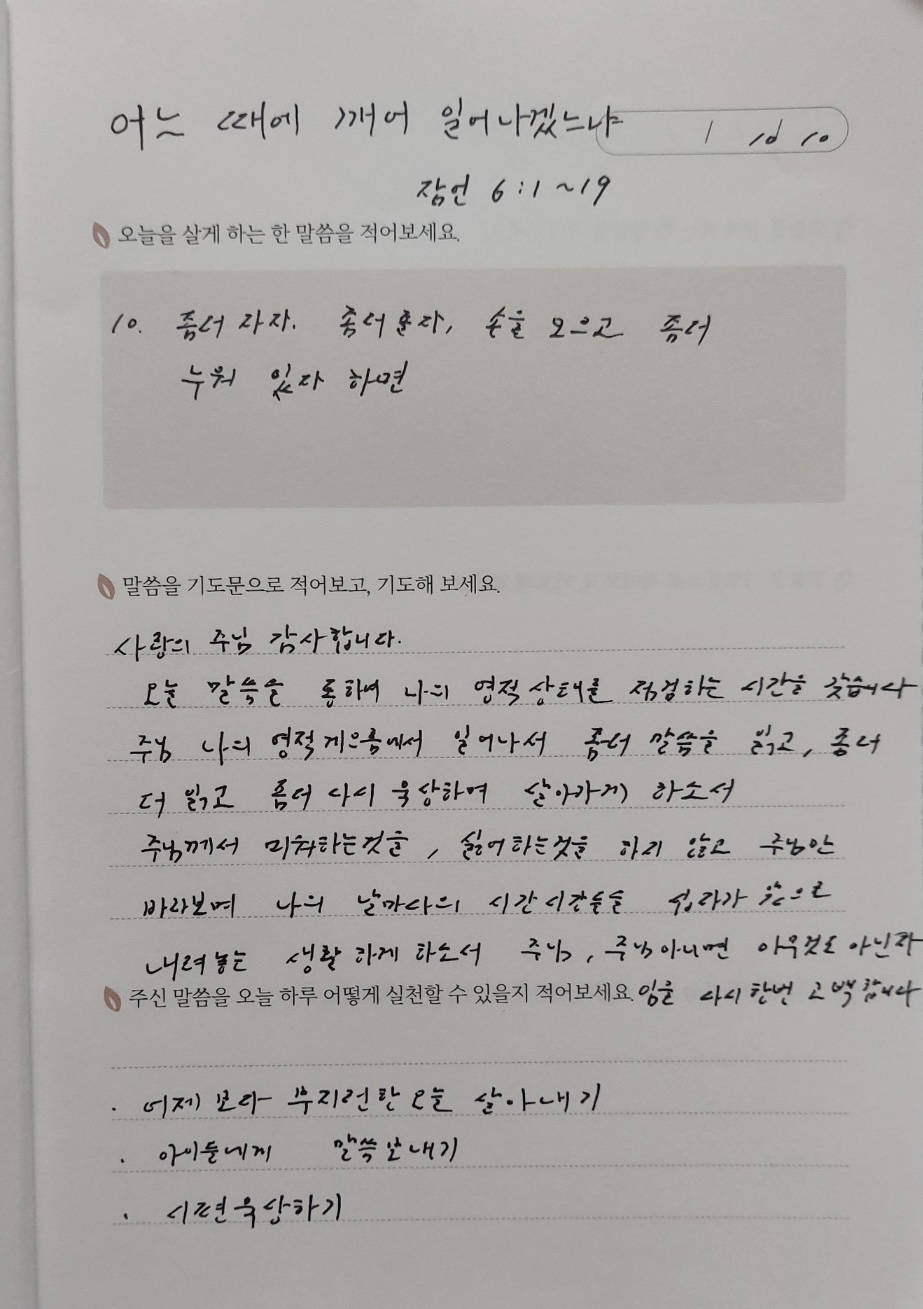 어느 때에 깨어 일어나겠느냐
1 10 10
잠언 6:1~19
오늘을 살게 하는 한 말씀을 적어보세요.
10. 좀더 자자. 좀더 졸자, 손을 모으고 좀더
누워 있자 하면
말씀을 기도문으로 적어보고, 기도해 보세요.
사랑의 주님 감사합니다.
오늘 말씀을 통하여 나의 영적상태를 점검하는 시간을 갖습니다
주님 나의 영적게으름에서 일어나서 좀더 말씀을 읽고, 좀더
더 읽고 좀더 다시 묵상하며 살아가게 하소서
주님께서 미워하는것을, 싫어하는것을 하지 않고 주님만
바라보며 나의 날마다의 시간시간들을 십자가 앞으로
내려놓는 생활 하게 하소서 주님, 주님아니면 아무것도 아닌자
주신 말씀을 오늘 하루 어떻게 실천할 수 있을지 적어보세요. 임을 다시한번 고백합니다
. 어제보다 부지런한 오늘 살아내기
. 아이들에게 말씀보내기
. 시편묵상하기